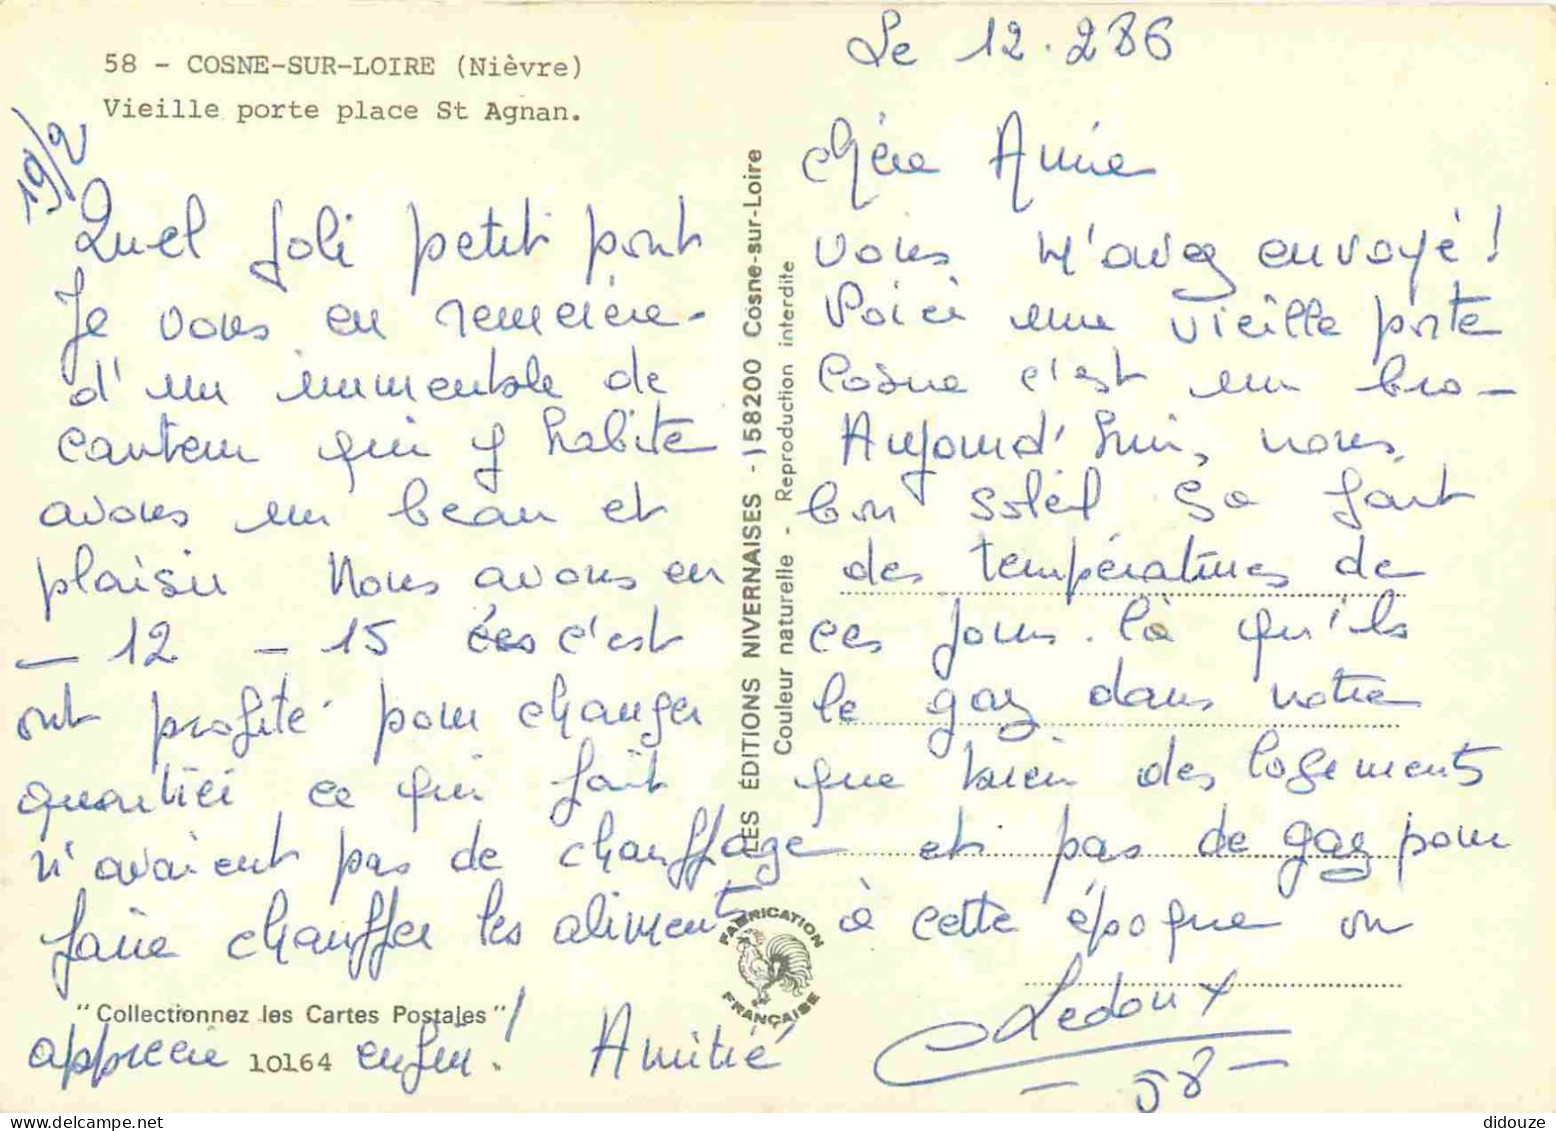 58 - COSNE-SUR-LOIRE (Nièvre)
Vieille porte place St Agnan.
19/2
Le 12.2 86
chère Amie
Quel joli petit pont vous m'avez envoyé!
Je vous en remercie. Voici une vieille porte
d'un immeuble de Cosne c'est un bro-
canteur qui y habite Aujourd'hui, nous
avons un beau et bon soleil ça fait
plaisir Nous avons eu des températures de
- 12 - 15 c'est ces jours-là qu'ils
ont profité pour changer le gaz dans notre
quartier ce qui fait que bien des logements
n'avaient pas de chauffage et pas de gaz pour
faire chauffer les aliments à cette époque on
apprécie enfin! Amitié
Ledoux
- 58 -
LES ÉDITIONS NIVERNAISES - 158200 Cosne-sur-Loire
Couleur naturelle - Reproduction interdite
FABRICATION
FRANÇAISE
"Collectionnez les Cartes Postales"
10164
didouze